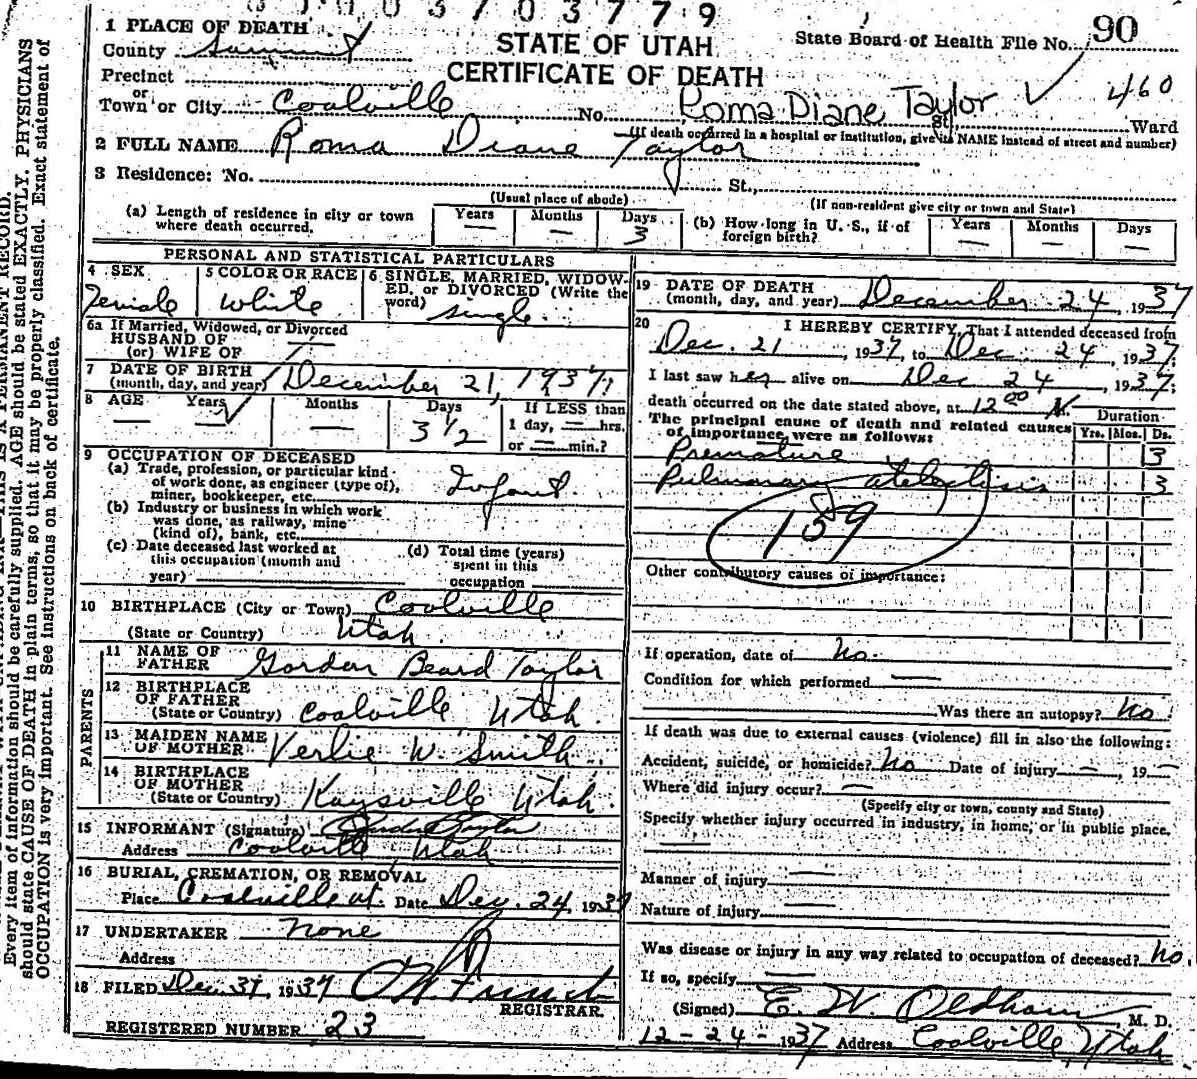 3 7 0 3 7 7 9
1 PLACE OF DEATH
County Summit
STATE OF UTAH
State Board of Health File No. 90
Precinct
CERTIFICATE OF DEATH
460
or
Town or City Coalville No. Roma Diane Taylor St., Ward
(If death occurred in a hospital or institution, give its NAME instead of street and number)
2 FULL NAME Roma Diane Taylor
3 Residence: No. St.,
(Usual place of abode) (If non-resident give city or town and State)
(a) Length of residence in city or town where death occurred. Years — Months — Days 3
(b) How long in U. S., if of foreign birth? Years — Months — Days —
PERSONAL AND STATISTICAL PARTICULARS
4 SEX Female
5 COLOR OR RACE White
6 SINGLE, MARRIED, WIDOWED, or DIVORCED (Write the word) Single.
6a If Married, Widowed, or Divorced
HUSBAND OF
(or) WIFE OF
7 DATE OF BIRTH
(month, day, and year) December 21, 1937
8 AGE Years — Months — Days 3 1/2 If LESS than
1 day, — hrs.
or — min.?
9 OCCUPATION OF DECEASED
(a) Trade, profession, or particular kind
of work done, as engineer (type of),
miner, bookkeeper, etc. Infant.
(b) Industry or business in which work
was done, as railway, mine
(kind of), bank, etc.
(c) Date deceased last worked at
this occupation (month and
year)
(d) Total time (years)
spent in this
occupation
10 BIRTHPLACE (City or Town) Coalville
(State or Country) Utah.
PARENTS
11 NAME OF
FATHER Gordon Beard Taylor
12 BIRTHPLACE
OF FATHER
(State or Country) Coalville Utah.
13 MAIDEN NAME
OF MOTHER Verlie W. Smith.
14 BIRTHPLACE
OF MOTHER
(State or Country) Kaysville Utah.
15 INFORMANT (Signature) Gordon Taylor
Address Coalville, Utah
16 BURIAL, CREMATION, OR REMOVAL
Place Coalville Ut. Date Dec. 24, 1937
17 UNDERTAKER None
Address
18 FILED Dec. 31, 1937
REGISTRAR.
REGISTERED NUMBER 23
19 DATE OF DEATH
(month, day, and year) December 24 1937
20 I HEREBY CERTIFY, That I attended deceased from
Dec. 21, 1937, to Dec. 24, 1937.
I last saw her alive on Dec 24, 1937;
death occurred on the date stated above, at 12 00 N.
The principal cause of death and related causes
of importance were as follows:
Duration
Yrs. Mos. Ds.
Premature 3
Pulmonary atelectisis 3
159
Other contributory causes of importance:
If operation, date of No.
Condition for which performed —
Was there an autopsy? No.
If death was due to external causes (violence) fill in also the following:
Accident, suicide, or homicide? No Date of injury —, 19 —
Where did injury occur? —
(Specify city or town, county and State)
Specify whether injury occurred in industry, in home, or in public place.
—
Manner of injury —
Nature of injury —
Was disease or injury in any way related to occupation of deceased? No.
If so, specify —
(Signed) E. W. Oldham, M. D.
12-24-1937 Address Coalville, Utah
Every item of information should be carefully supplied. AGE should be stated EXACTLY. PHYSICIANS
should state CAUSE OF DEATH in plain terms, so that it may be properly classified. Exact statement of
OCCUPATION is very important. See instructions on back of certificate.